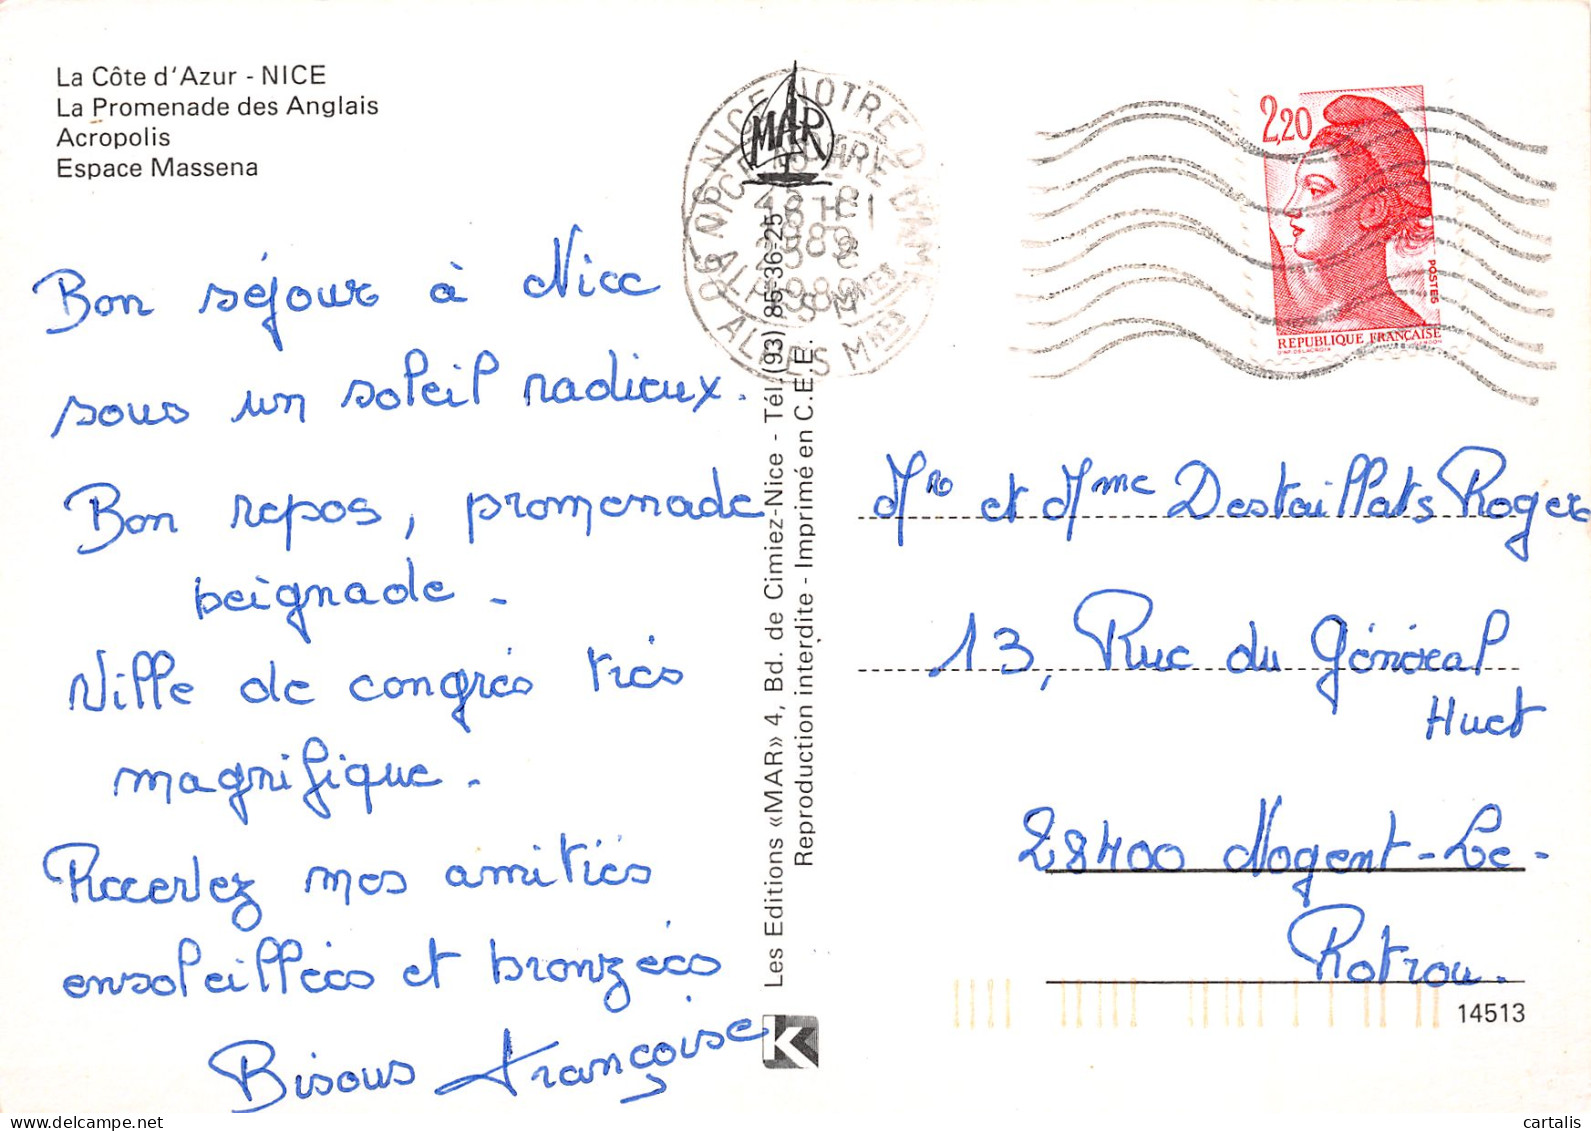 La Côte d'Azur - NICE
La Promenade des Anglais
Acropolis
Espace Massena
Bon séjour à Nice
sous un soleil radieux.
Bon repos, promenade
beignade.
Ville de congrés trés
magnifique.
Recevez mes amitiés
ensoleillées et bronzées
Bisous Françoise
Les Editions «MAR» 4, Bd. de Cimiez-Nice - Tél. (93) 85-36-25
Reproduction interdite - Imprimé en C.E.E.
MAR
06 NICE NOTRE DAME
ALPES MMES
2,20
POSTES
REPUBLIQUE FRANÇAISE
D'AP. DELACROIX
Mr et Mme Destaillats Roger
13, Rue du Général
Huet
28400 Nogent-Le-
Rotrou.
14513
K
cartalis
delcampe.net